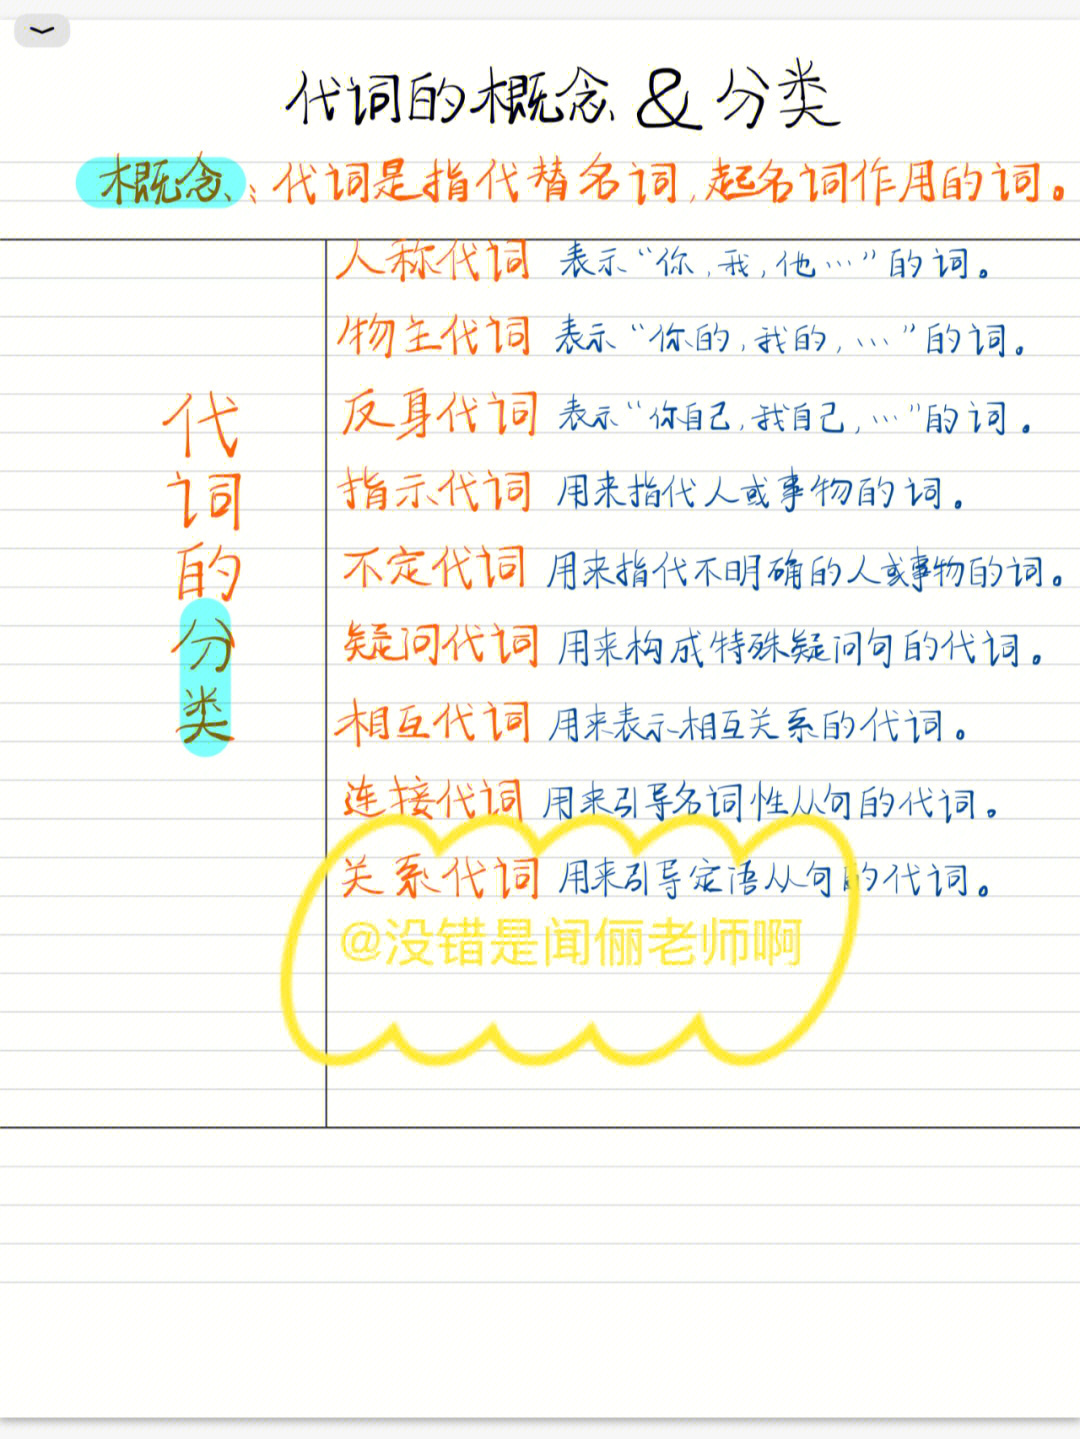 代词的概念&分类
概念：代词是指代替名词,起名词作用的词。
代词的分类
人称代词 表示“你,我,他…”的词。
物主代词 表示“你的,我的,…”的词。
反身代词 表示“你自己,我自己,…”的词。
指示代词 用来指代人或事物的词。
不定代词 用来指代不明确的人或事物的词。
疑问代词 用来构成特殊疑问句的代词。
相互代词 用来表示相互关系的代词。
连接代词 用来引导名词性从句的代词。
关系代词 用来引导定语从句的代词。
@没错是闻俪老师啊